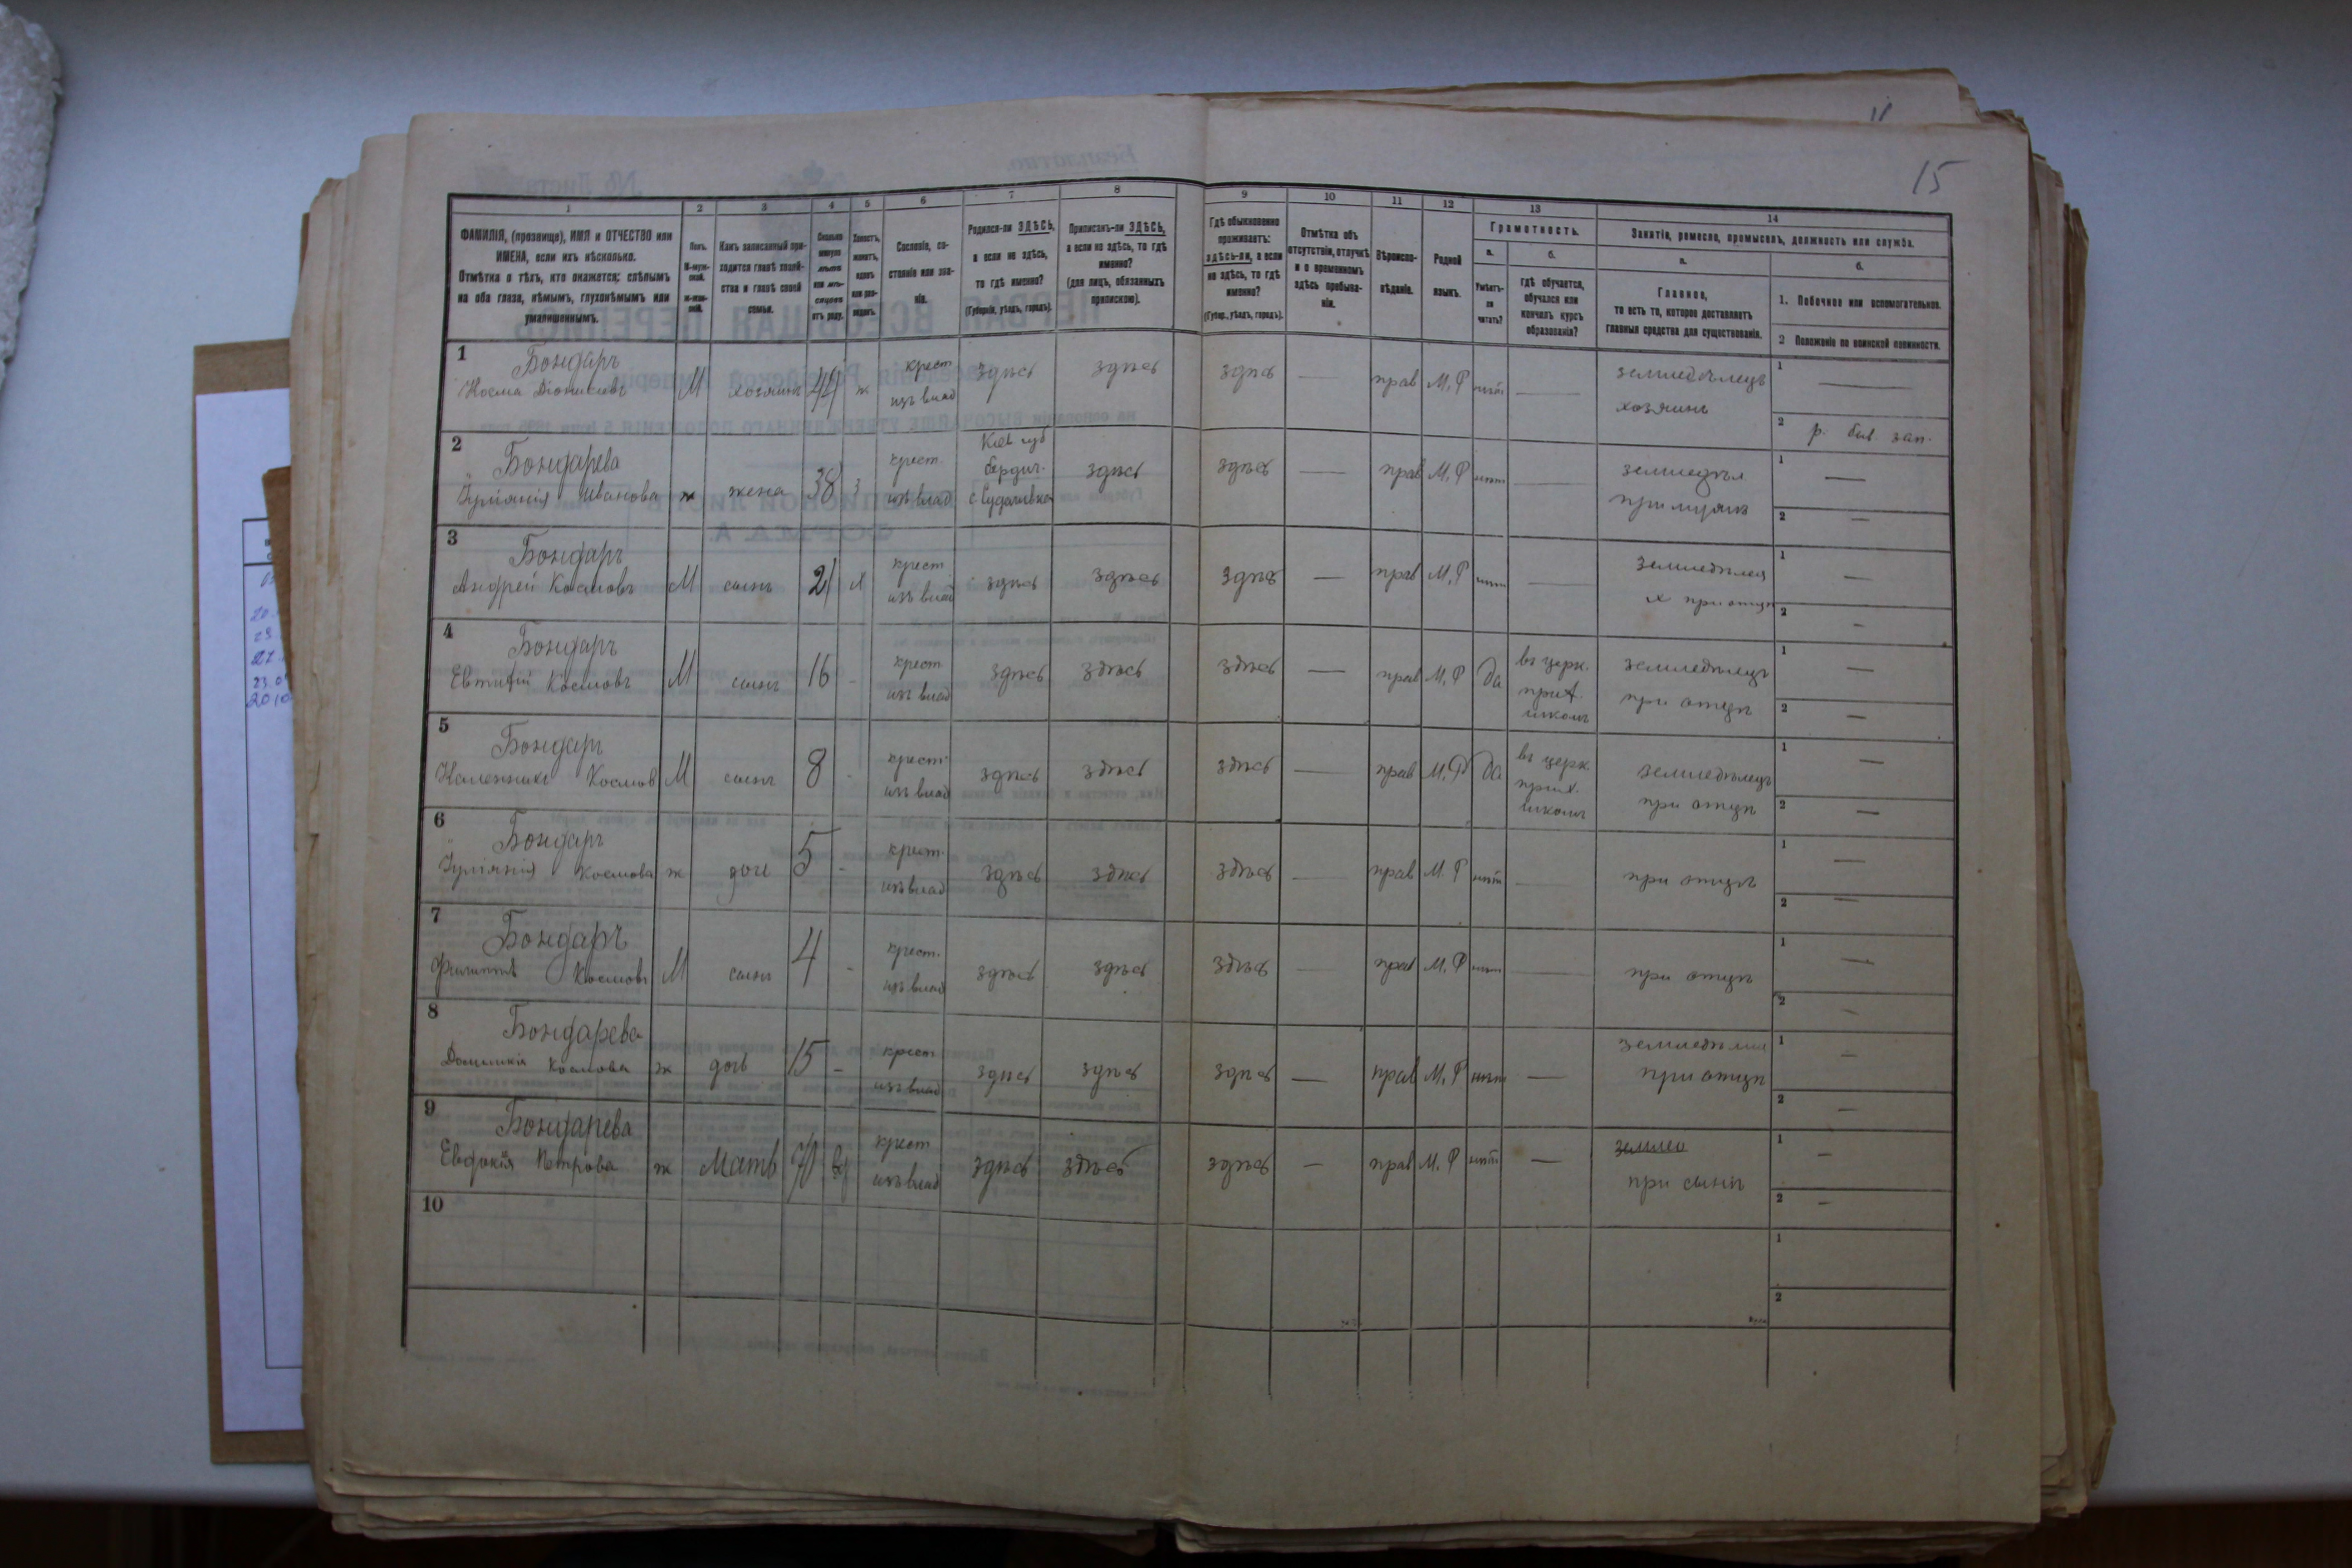 15
1 2 3 4 5 6 7 8 9 10 11 12 13 14
ФАМИЛІЯ, (прозвище), ИМЯ и ОТЧЕСТВО или
ИМЕНА, если ихъ нѣсколько.
Отмѣтка о тѣхъ, кто окажется: слѣпымъ
на оба глаза, нѣмымъ, глухонѣмымъ или
умалишеннымъ.
Полъ.
М-мужской.
ж-женскій.
Какъ записанный при-
ходится главѣ хозяй-
ства и главѣ своей
семьи.
Сколько
минуло
лѣтъ
или мѣ-
сяцевъ
отъ роду.
Холостъ,
женатъ,
вдовъ
или раз-
веденъ.
Сословіе, со-
стояніе или зва-
ніе.
Родился-ли ЗДѢСЬ,
а если не здѣсь,
то гдѣ именно?
(Губернія, уѣздъ, городъ).
Приписанъ-ли ЗДѢСЬ,
а если не здѣсь, то гдѣ
именно?
(для лицъ, обязанныхъ
припискою).
Гдѣ обыкновенно
проживаетъ:
здѣсь-ли, а если
не здѣсь, то гдѣ
именно?
(Губер., уѣздъ, городъ).
Отмѣтка объ
отсутствіи, отлучкѣ
и о временномъ
здѣсь пребыва-
ніи.
Вѣроиспо-
вѣданіе.
Родной
языкъ.
Грамотность.
а.
Умѣетъ-
ли
читать?
б.
гдѣ обучается,
обучался или
кончилъ курсъ
образованія?
Занятіе, ремесло, промыселъ, должность или служба.
а.
Главное,
то есть то, которое доставляетъ
главныя средства для существованія.
б.
1. Побочное или вспомогательное.
2 Положеніе по воинской повинности.
1 Бондарь
Косма Діонисіевъ М хозяинъ 44 ж крест изъ влад здѣсь здѣсь здѣсь — прав М. Р нѣт — земледѣлецъ хозяинъ
1 —
2 р. бив зап.
2 Бондарева
Іуліянія Иванова ж жена 38 з крест. изъ влад Кіев губ бердич. здѣсь здѣсь — прав М. Р нѣт — земледѣл при мужѣ
1 —
2 —
3 Бондарь
Андрей Космовъ М сынъ 21 х крест изъ влад здѣсь здѣсь здѣсь — прав М. Р нѣт — при отцѣ
1 —
2 -
4 Бондарь
Евтихій Космовъ М сынъ 16 - крест изъ влад здѣсь здѣсь здѣсь — прав М. Р да въ церк. прих. школѣ земледѣлецъ при отцѣ
1 —
2 —
5 Бондарь
Каленникъ Космов М сынъ 8 - крест. изъ влад здѣсь здѣсь здѣсь — прав М. Р да въ церк. прих. школѣ земледѣлецъ при отцѣ
1 —
2 —
6 Бондарь
Іуліянія Космова ж дочь 5 - крест. изъ влад здѣсь здѣсь здѣсь — прав М. Р нѣт — при отцѣ
1 —
2 —
7 Бондарь
Филиппъ Космовъ М сынъ 4 - крест. изъ влад здѣсь здѣсь здѣсь — прав М. Р нѣт — при отцѣ
1 —
2 -
8 Бондарева
Домникія Космова ж дочь 15 - крест изъ влад здѣсь здѣсь здѣсь — прав М. Р нѣт — при отцѣ
1 —
2 —
9 Бондарева
Евдокія Петрова ж Мать 70 вд крест изъ влад здѣсь здѣсь здѣсь — прав М. Р нѣт — при сынѣ
1 —
2 —
10
1
2